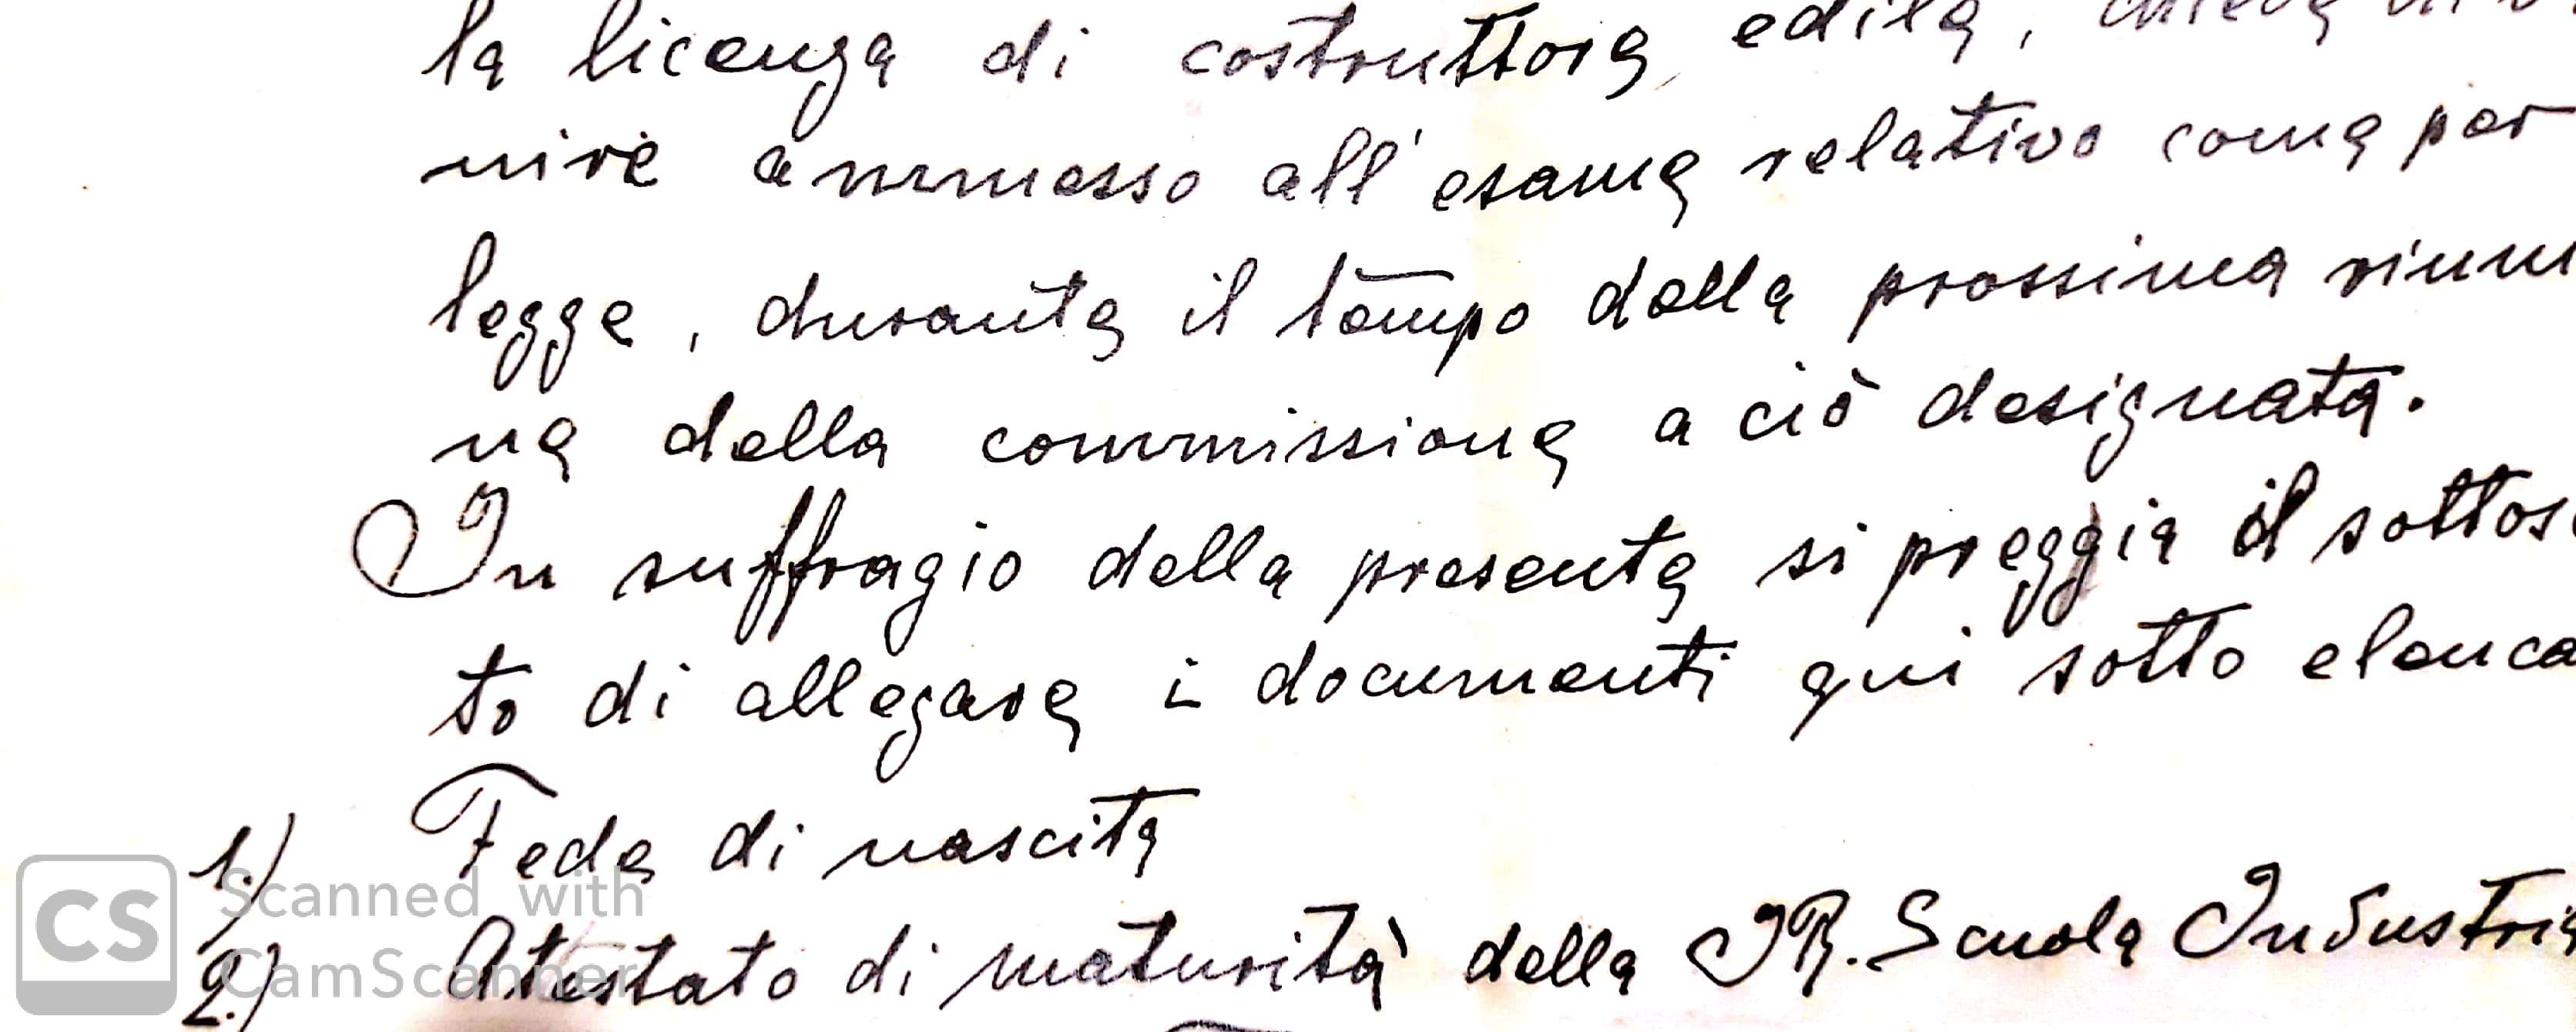 la licenza di costruttore edile, chiede di v
nire ammesso all'esame relativo come per
legge, durante il tempo della prossima riunio
ne della commissione a ciò designata.
In suffragio della presente si preggia il sottos
to di allegare i documenti qui sotto elenca
1.) Fede di nascita
2.) Attestato di maturità della I.R. Scuola Industria
Scanned with
CamScanner
CS